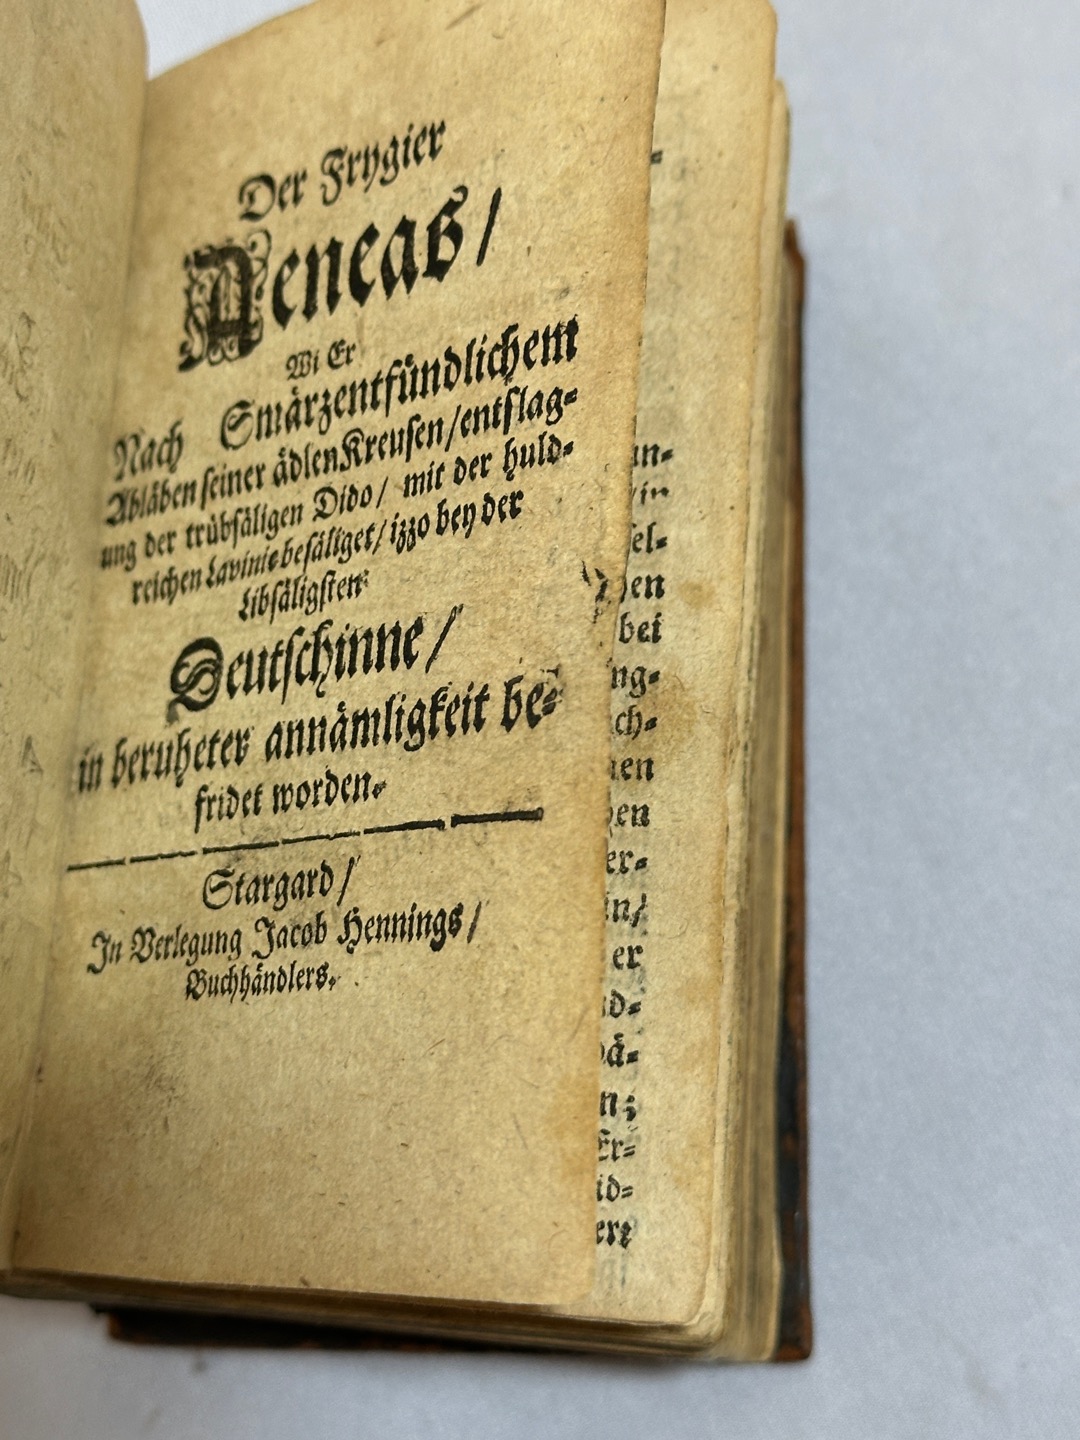 Der Frygier
Aeneas/
Wi Er
Nach Smärzentfündlichem
Abläben seiner ädlen Kreusen/entslag-
ung der trübsäligen Dido/ mit der huld-
reichen Lavinie besäliget/ izzo bey der
Libsäligsten
Deutschinne/
in beruheter annämligkeit be-
fridet worden.
Stargard/
In Verlegung Jacob Hennings/
Buchhändlers.
un-
/in
sel-
en
bei
ng-
ch-
en
en
er-
in/
er
d-
ä-
n;
Er-
id-
ere